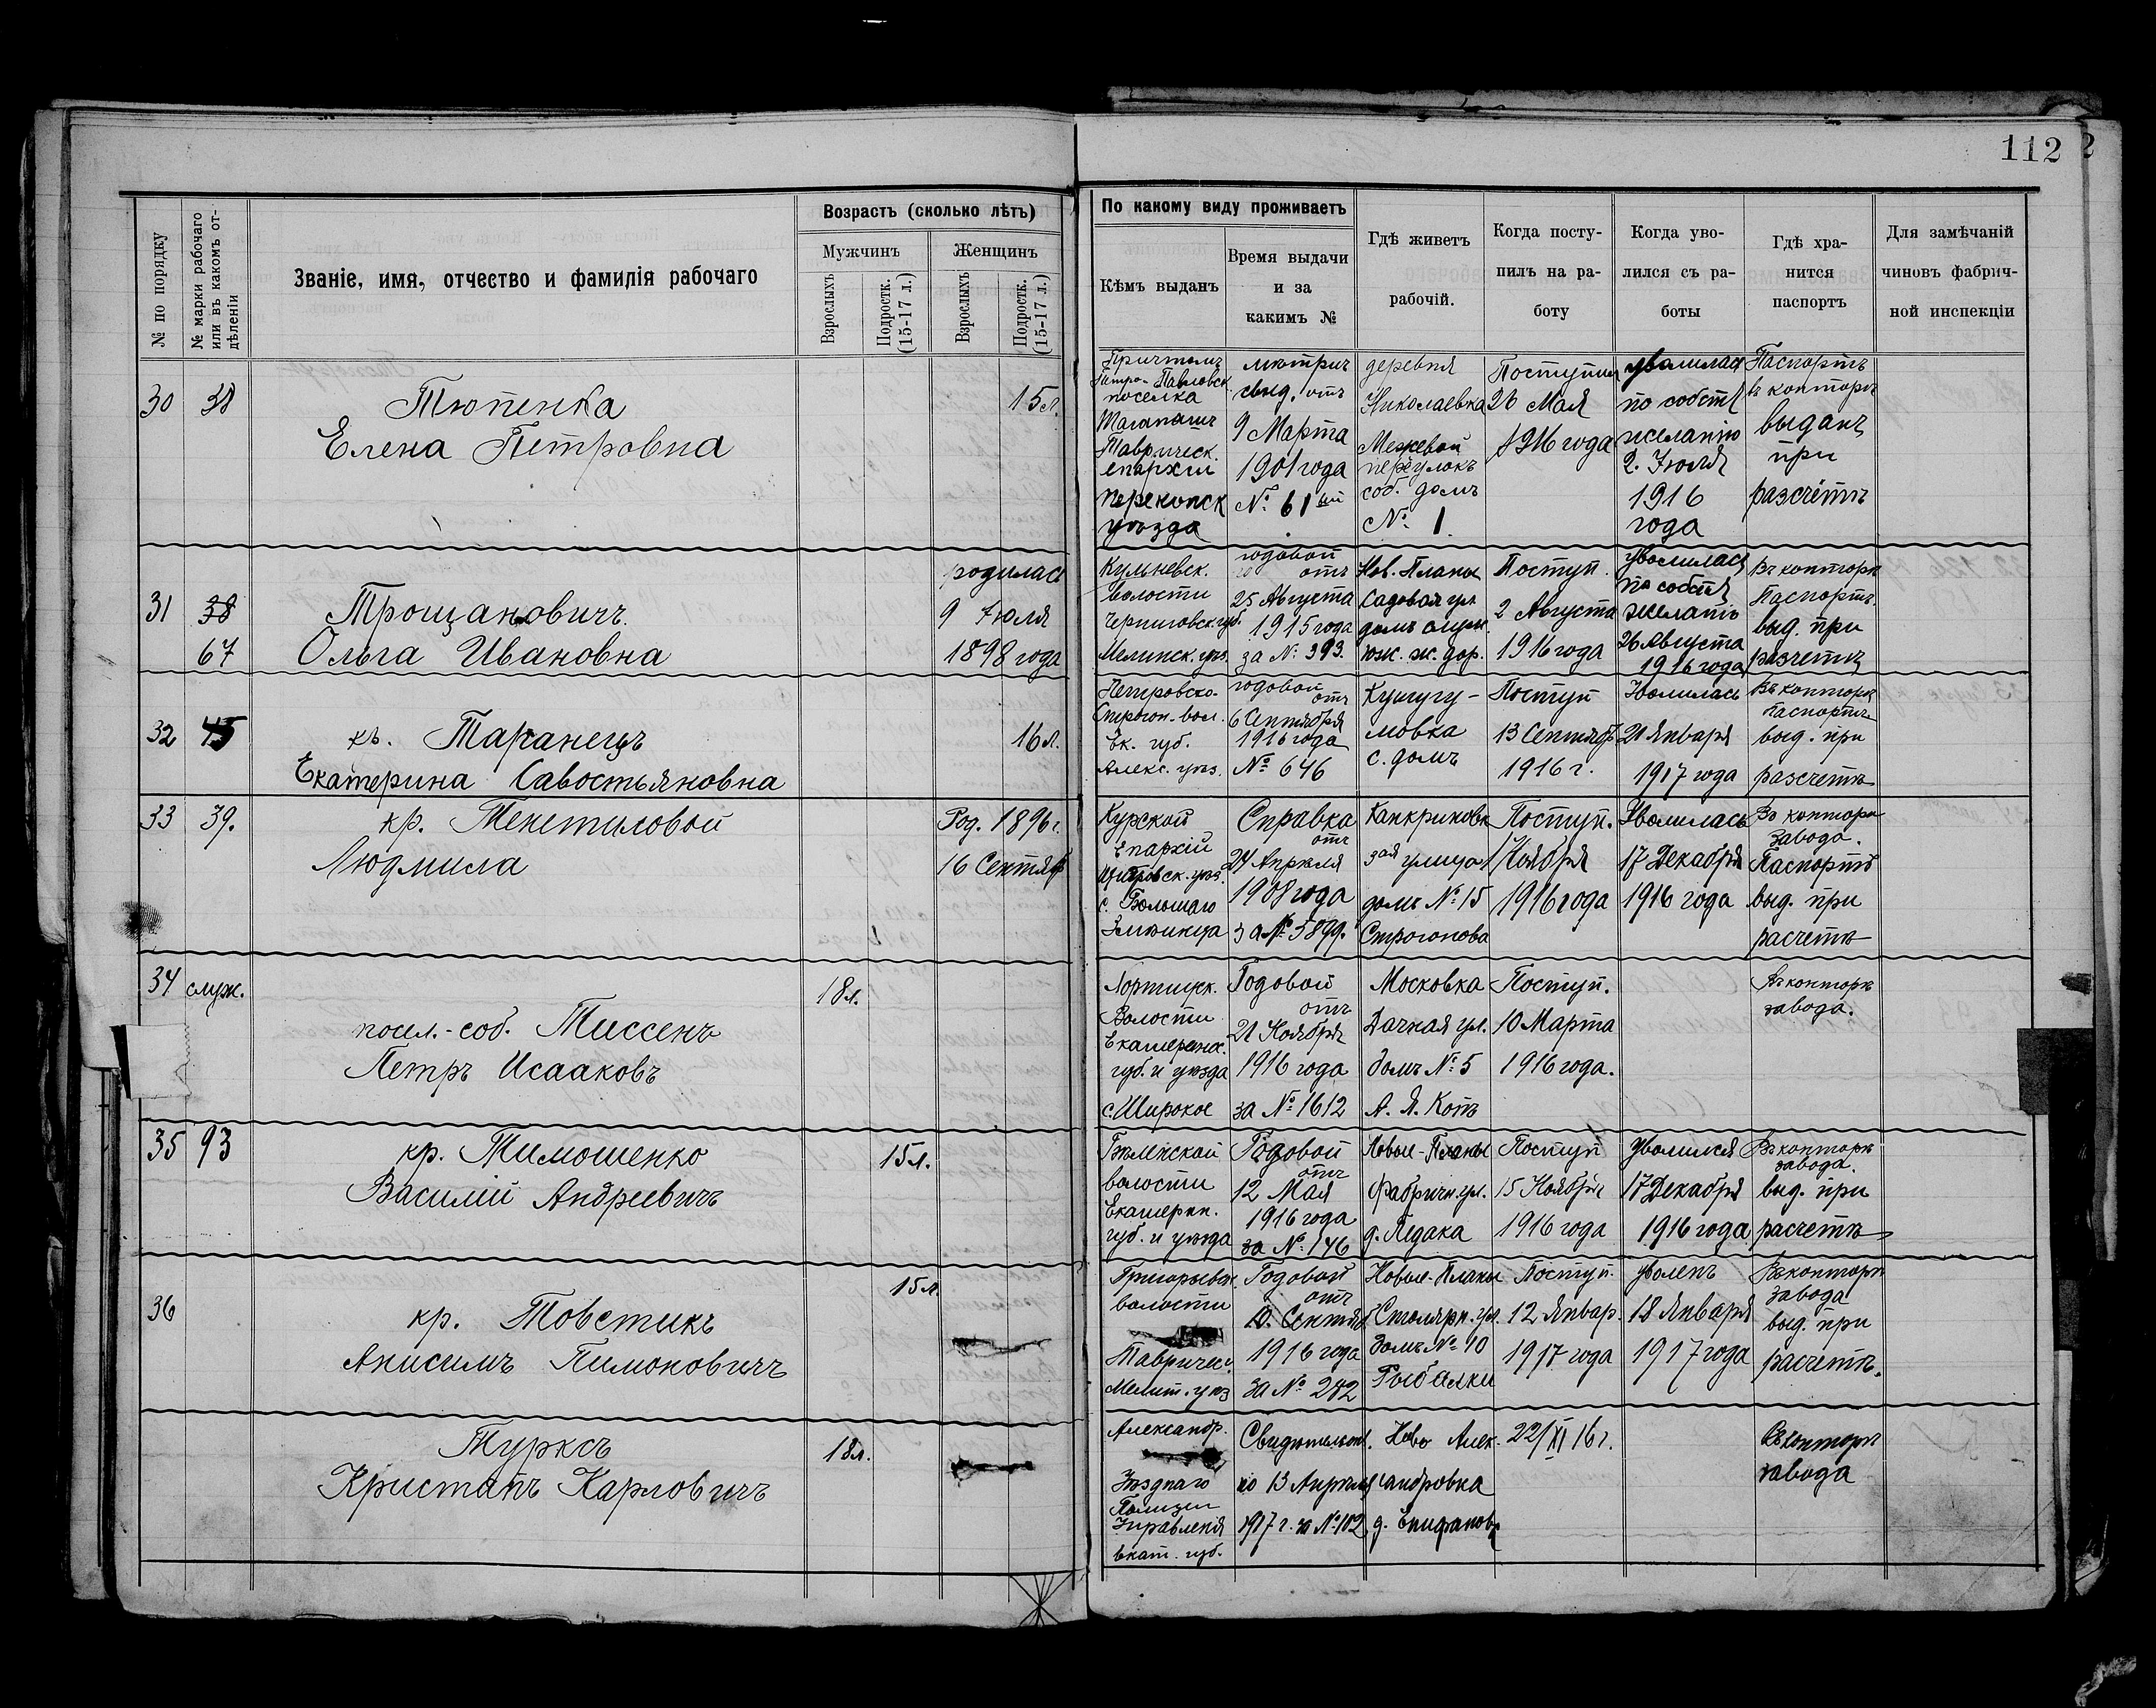 112
№ по порядку
№ марки рабочаго или въ какомъ отдѣленіи
Званіе, имя, отчество и фамилія рабочаго
Возрастъ (сколько лѣтъ)
Мужчинъ
Женщинъ
Взрослыхъ
Подростк. (15-17 л.)
Взрослыхъ
Подростк. (15-17 л.)
По какому виду проживаетъ
Кѣмъ выданъ
Время выдачи
и за
какимъ №
Гдѣ живетъ
рабочій.
Когда посту-
пилъ на ра-
боту
Когда уво-
лился съ ра-
боты
Гдѣ хра-
нится
паспортъ
Для замѣчаній
чиновъ фабрич-
ной инспекціи
30
38
Тютенка
Елена Петровна
15 л.
Причтомъ
Петро-Павловск.
поселка
Таврическ.
епархіи
перекопск
уѣзда
метрич
свид. отъ
9 Марта
1901 года
№ 61
деревня
Николаевка
Межевой
переулокъ
соб. домъ
№ 1.
Поступила
26 Мая
1916 года
уволилась
по собств
желанію
2. Іюля
1916
года
Паспортъ
въ конторѣ
выданъ
при
разсчетѣ
31
38
67
Трощановичъ.
Ольга Ивановна
родилась
9 Іюля
1898 года
волости
Черниговск. губ.
годовой
отъ
25 Августа
1915 года
за № 393.
Нов. Планы
Садовая ул.
домъ служ.
юж. ж. дор.
Поступ.
2 Августа
1916 года
уволилась
по собств
желанію
26 Августа
1916 года
Въ конторѣ
Паспортъ.
выд. при
разчетѣ
32
45
кр. Таранецъ
Екатерина Савостьяновна
16 л.
Петровско-
вол.
Ек. губ.
Алекс. уѣз.
годовой
отъ
6 Сентября
1916 года
№ 646
Кучугу-
мовка
с. домъ
Поступ
13 Сентябр
1916 г.
Уволилась
21 Января
1917 года
Въ конторѣ
паспортъ
выд. при
разсчетѣ
33
39.
кр. Тенетиловой
Людмила
Род. 1896 г.
16 Сентяб
Курской
Епархіи
Щигровск. уѣз.
с. Большаго
Змѣинца
Справка
отъ
24 Апрѣля
1908 года
за № 5899.
Канкриновк
3ая улица
домъ № 15
Строгонова
Поступ.
1 Ноября
1916 года
Уволилась
17 Декабря
1916 года
Въ конторѣ
завода.
Паспортъ
выд. при
расчетѣ
34
служ.
посел.-соб. Тиссенъ
Петръ Исааковъ
18 л.
Хортицк.
Волости
Екатеринос.
губ. и уѣзда
с. Широкое
Годовой
отъ
21 Ноября
1916 года
за № 1612
Московка
Дачная ул.
домъ № 5
А. Я. Котъ
Поступ.
10 Марта
1916 года.
Въ конторѣ
завода.
35
93
кр. Тимошенко
Василій Андреевичъ
15 л.
Бѣленской
волости
Екатерин.
губ. и уѣзда
Годовой
отъ
12 Мая
1916 года
за № 146
Новые-Планы
Фабричн. ул.
д. Педака
Поступ
15 Ноября
1916 года
Уволился
17 Декабря
1916 года
Въ конторѣ
завода.
выд. при
расчетѣ
36
кр. Товстикъ
Анисимъ Пимоновичъ
15 л.
Григорьевск.
волости
Тавричес.
Мелит. уѣз
Годовой
отъ
10. Сентяб
1916 года
за № 242
Новые-Планы
Столярн. ул.
Домъ № 10
Рыбалки
Поступ.
12 Январ.
1917 года
уволенъ
18 Января
1917 года
Въ конторѣ
завода
выд. при
расчетѣ.
Турксъ
Кристапъ Карловичъ
18 л.
Александр.
Уѣзднаго
Полиціи
Управленія
Екат. губ.
Свидѣтельст.
по 13 Апрѣля
1917 г. за № 102
Ново Алек-
сандровка
д. Епифанова
22/XI 16 г.
Въ конторѣ
завода